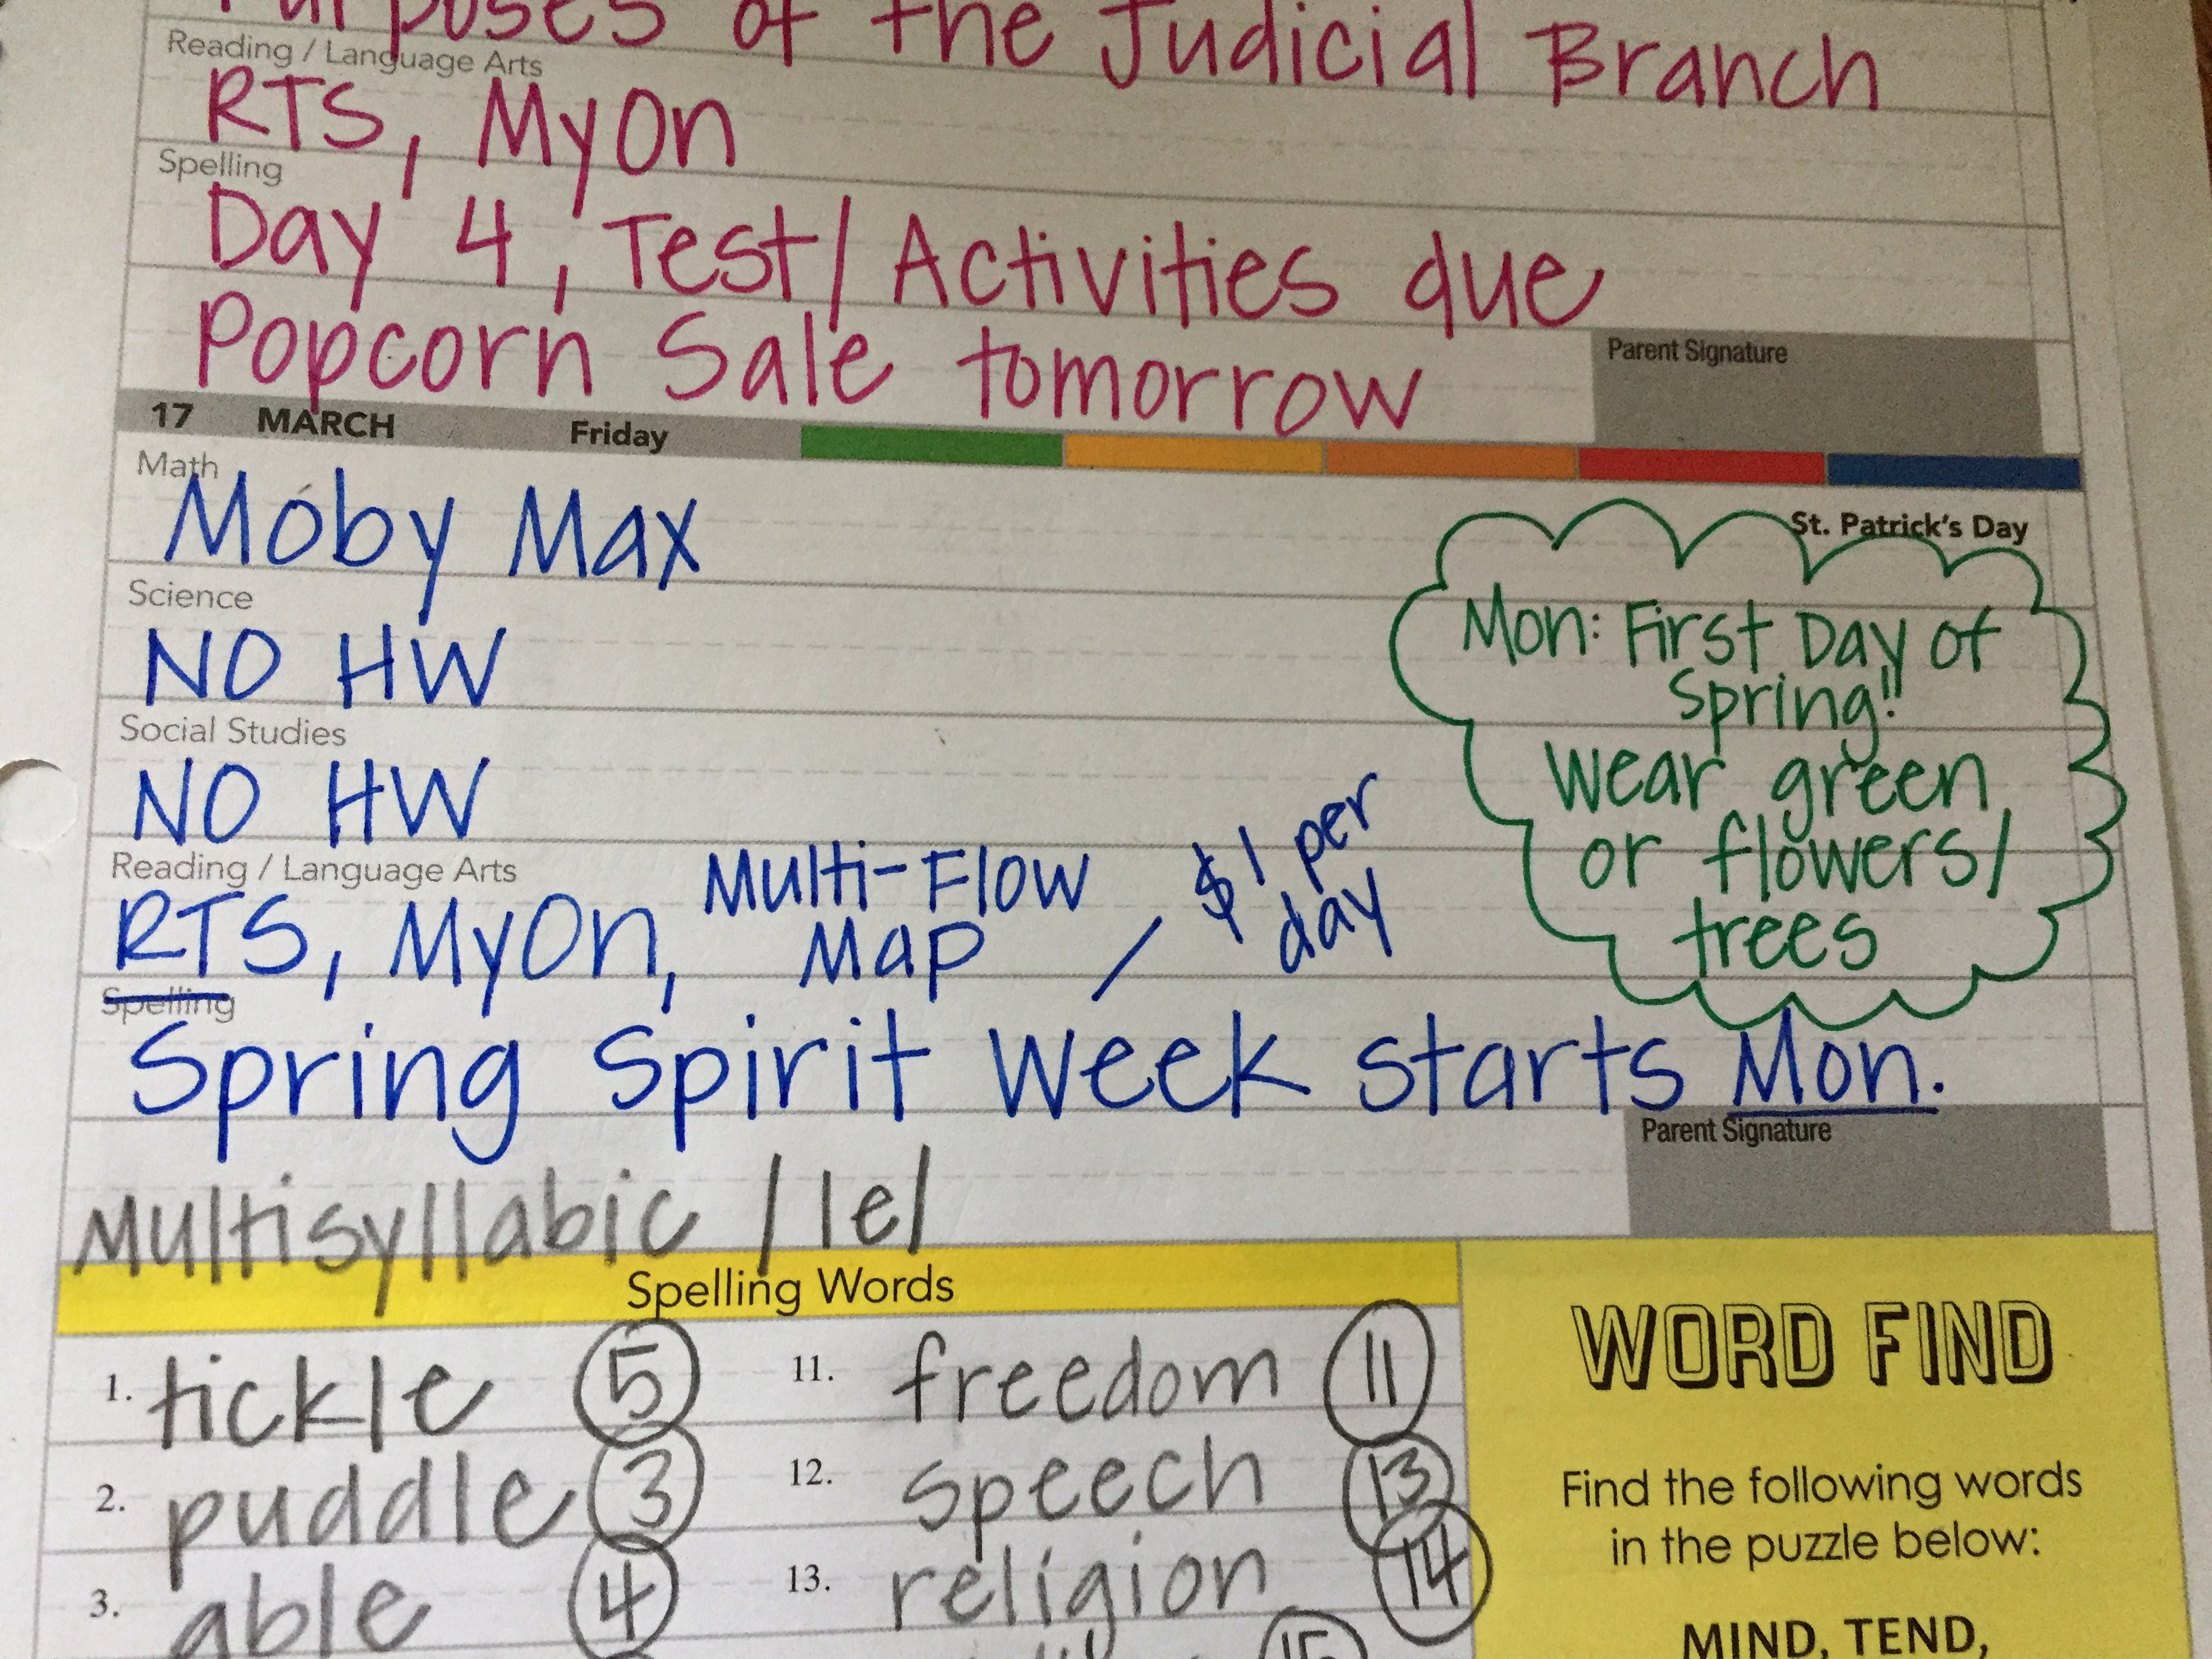 Purposes of the Judicial Branch
Reading / Language Arts
RTS, MyOn
Spelling
Day 4, Test/Activities due
Popcorn Sale tomorrow
Parent Signature
17 MARCH Friday
Math
Moby Max
St. Patrick's Day
Science
NO HW
Mon: First Day of
Spring!!
Wear green
or flowers/
trees
Social Studies
NO HW
Reading / Language Arts
RTS, MyOn, Multi-Flow
Map / $1 per
day
Spelling
Spring Spirit Week starts Mon.
Parent Signature
Multisyllabic /le/
Spelling Words
1. tickle 5
2. puddle 3
3. able 4
11. freedom 11
12. speech 13
13. religion 14
15
WORD FIND
Find the following words
in the puzzle below:
MIND, TEND,